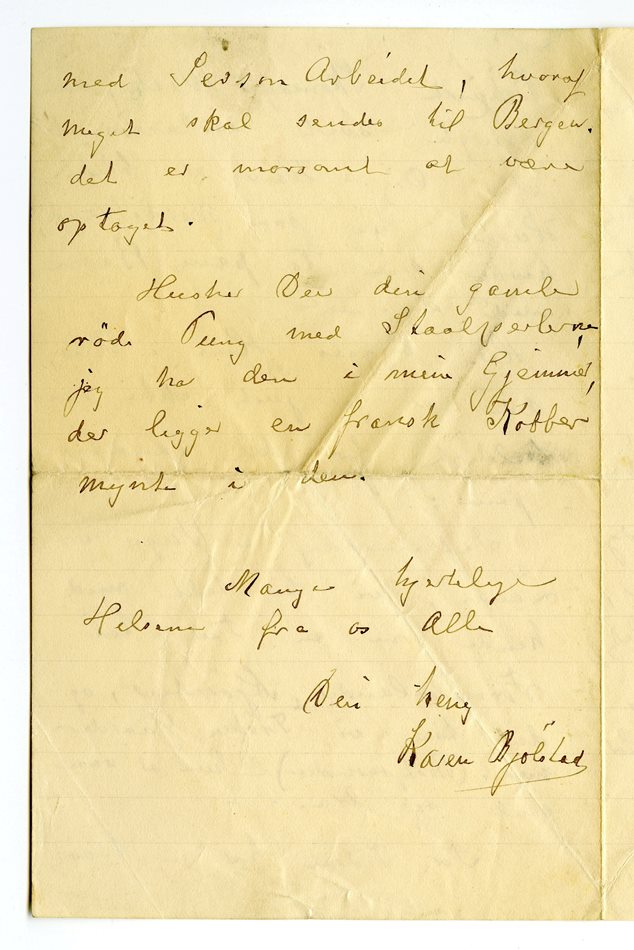 med Sesson Arbeidet, hvoraf
meget skal sendes til Bergen.
det er morsomt at være
optaget.
Husker Du din gamle
röde Pung med Staalperlerne,
jeg ha den i mine Gjemmer,
der ligger en fransk Kobber
mynt i den.
Mange hjertelige
Helsener fra os Alle
Din heng
Karen Bjölstad